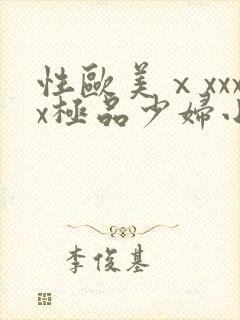 性歐美ⅹxxx
x極品少婦小
李俊基